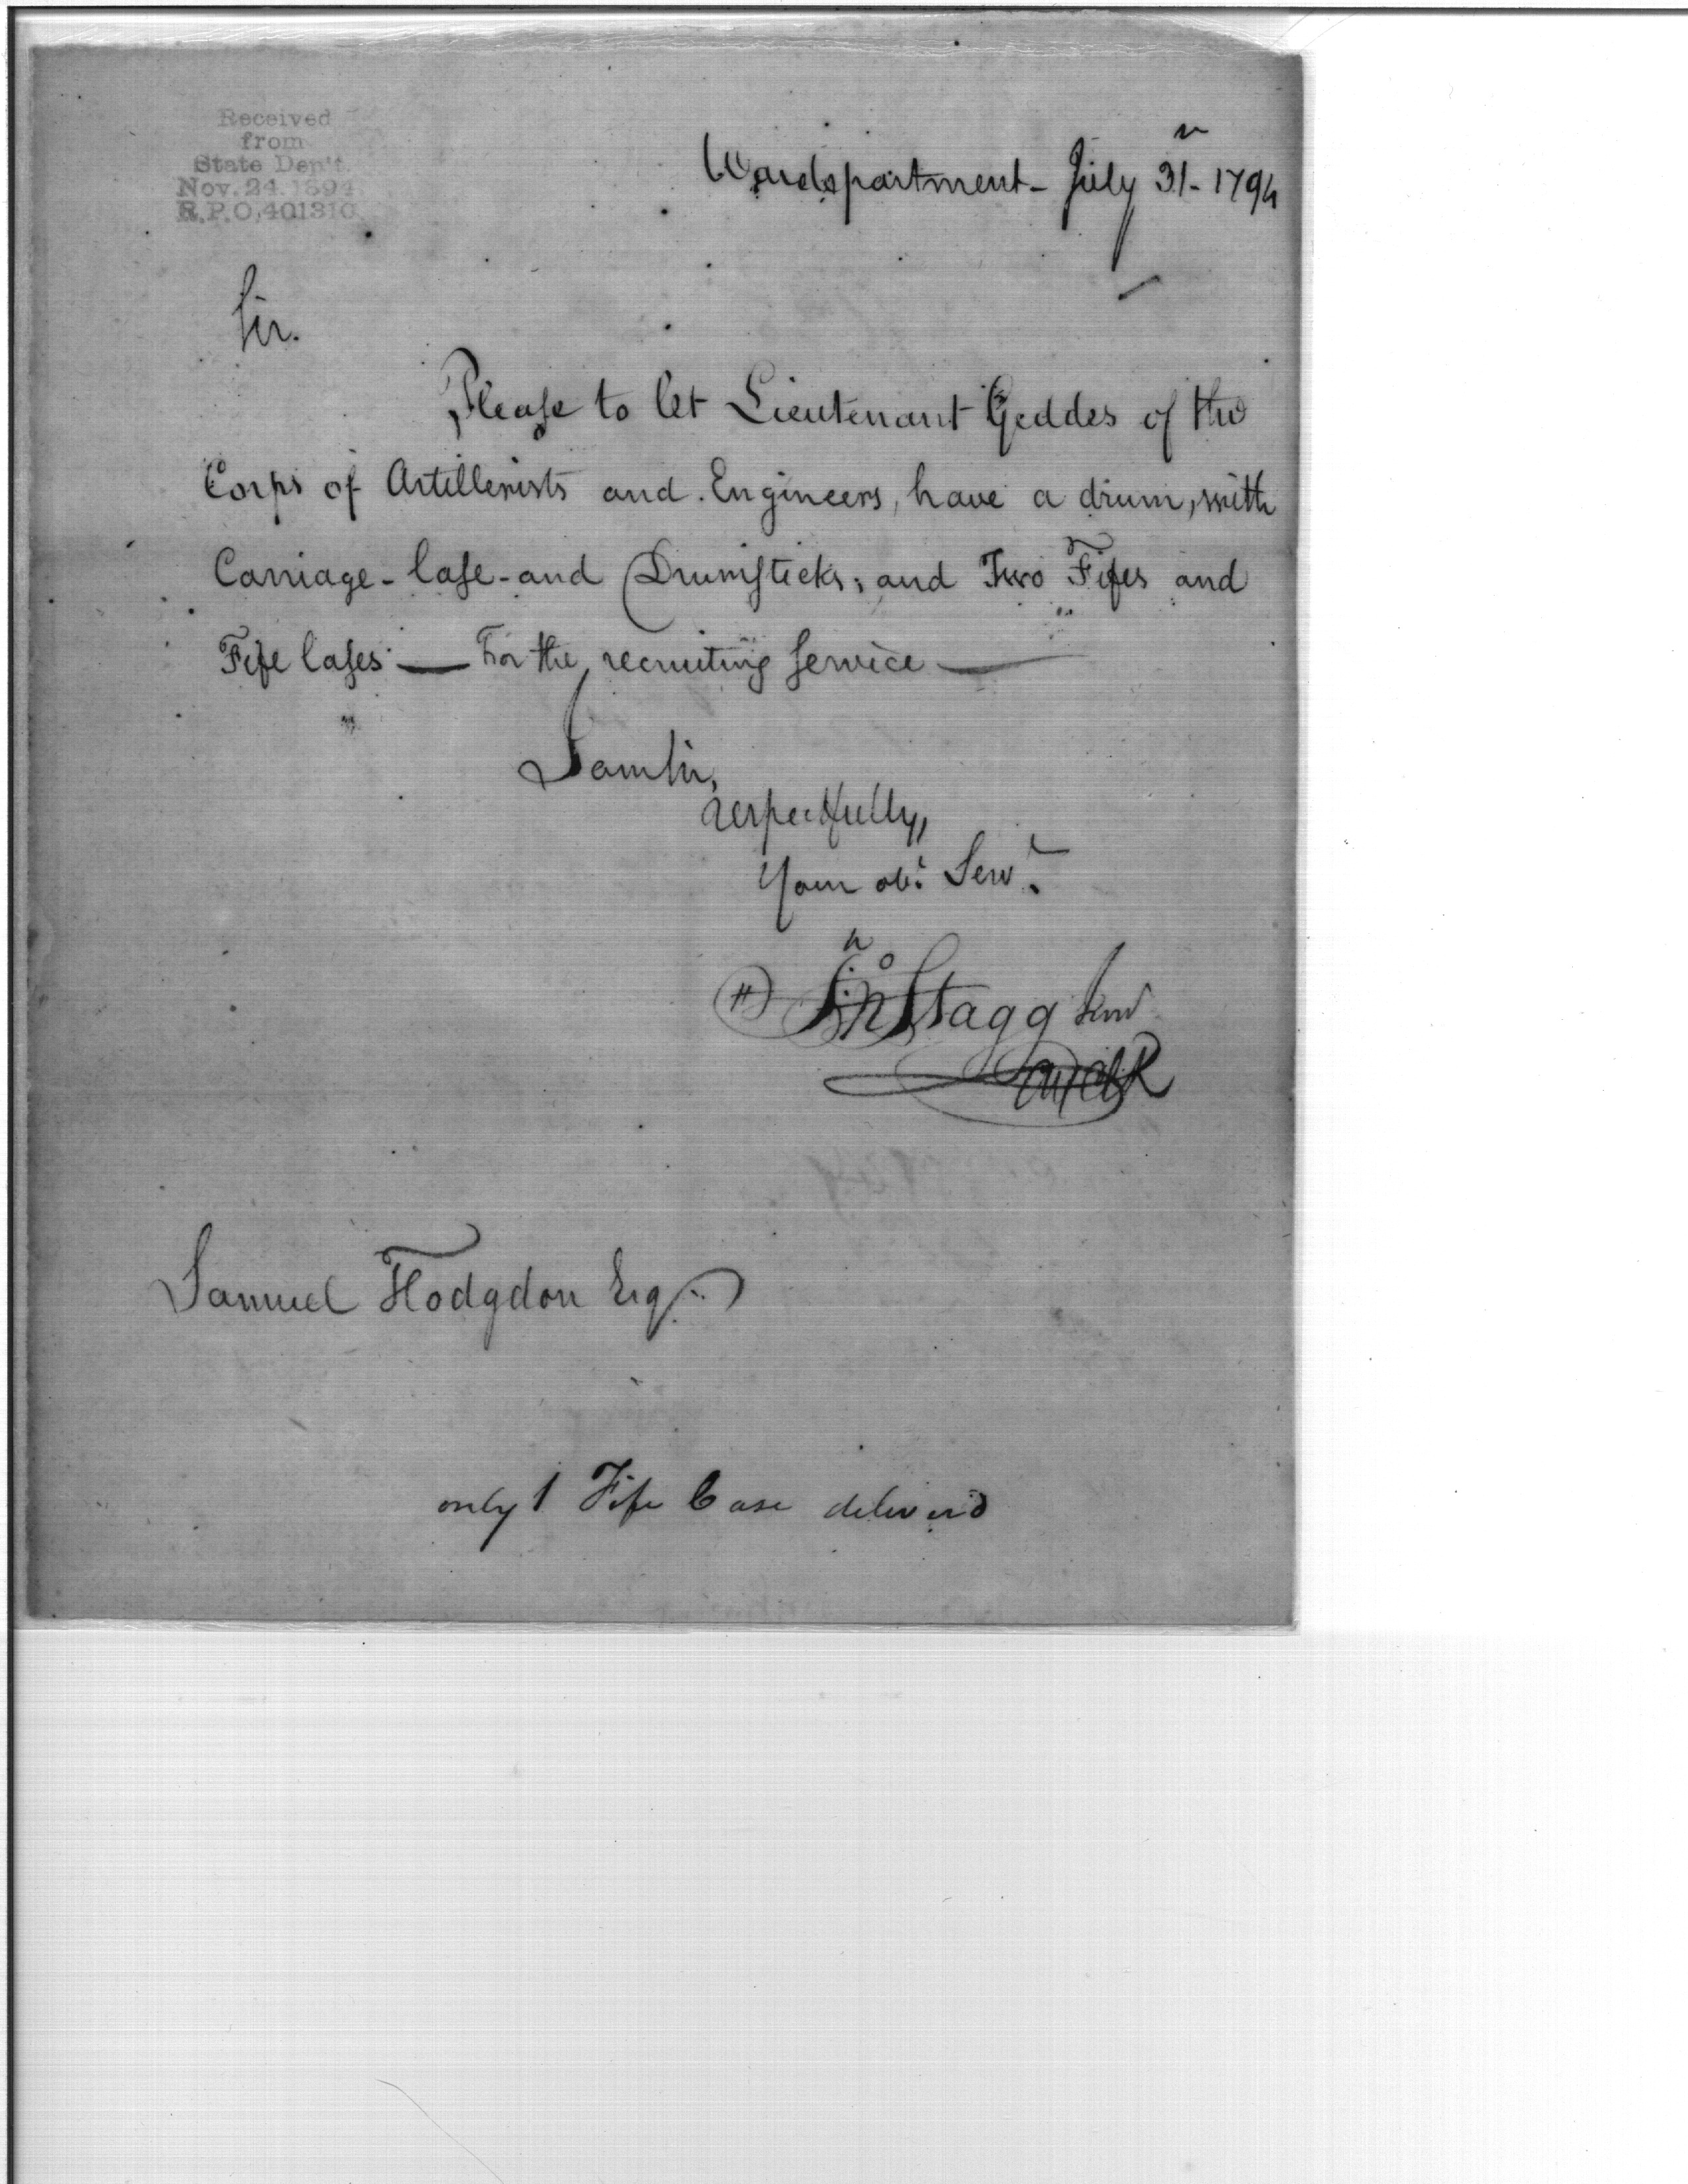 Received
from
State Dep't.
Nov. 24 1894
R.P.O. 401310
Wardepartment - July 31 - 1794
Sir.
Please to let Lieutenant Geddes of the
Corps of Artillerists and Engineers, have a drum, with
Carriage - Case - and Drumsticks; and Two Fifes and
Fife Cases — For the recruiting Service —
I am Sir,
respectfully,
Your obt. Servt.
Jno Stagg Junr
Samuel Hodgdon Esqr.
only 1 Fife Case deliverd